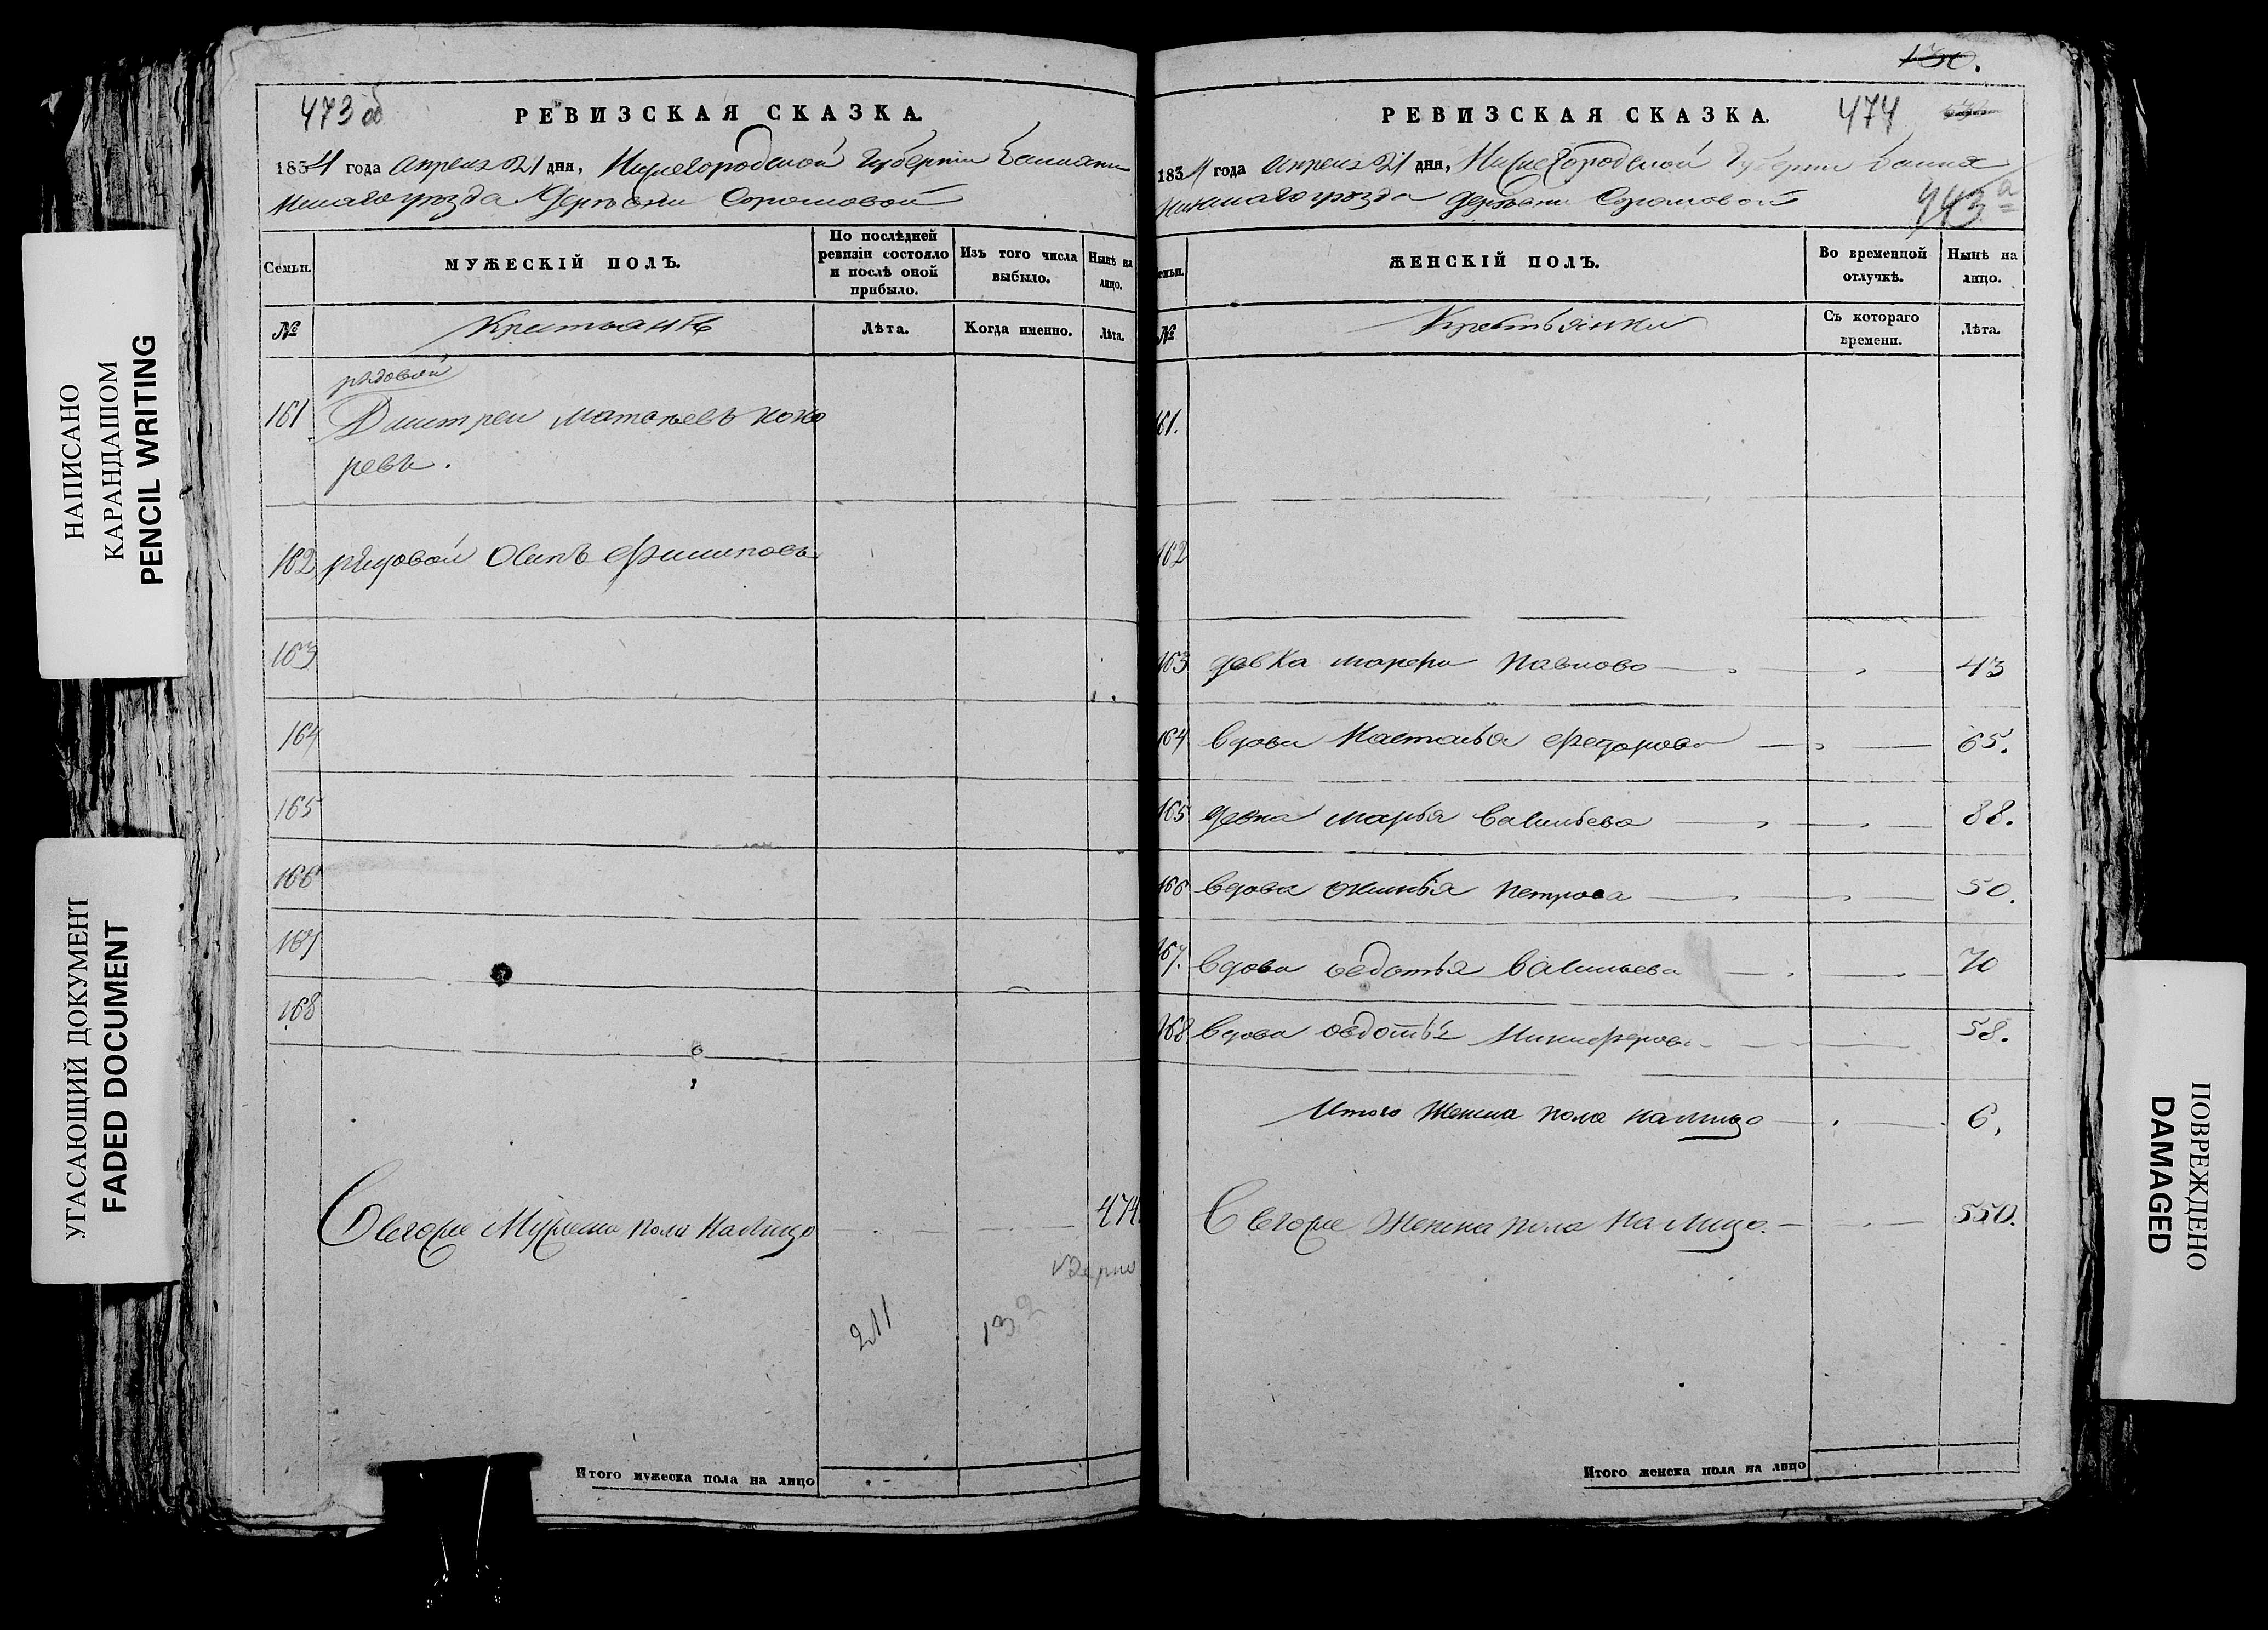 НАПИСАНО
КАРАНДАШОМ
PENCIL WRITING
УГАСАЮЩИЙ ДОКУМЕНТ
FADED DOCUMENT
473 об
РЕВИЗСКАЯ СКАЗКА.
1834 года апреля 21 дня, Нижегородской Губернии
уезда Деревни
Семьи.
МУЖЕСКІЙ ПОЛЪ.
По послѣдней ревизіи состояло и послѣ оной прибыло.
Изъ того числа выбыло.
Нынѣ на лицо.
№
Лѣта.
Когда именно.
Лѣта.
рядовой
161 Дмитреи Матвѣевъ
ревъ.
162 рядовой Осипъ Филиповъ
163
164
165
166
167
168
Всего же Мужеска пола на лицо 474.
верно
211 132
Итого мужеска пола на лицо
130.
РЕВИЗСКАЯ СКАЗКА.
474
1834 года апреля 21 дня, Нижегородской Губернии
уезда деревни
943а
ЖЕНСКІЙ ПОЛЪ.
Во временной отлучкѣ.
Нынѣ на лицо.
№
Крестьянки
Съ котораго времени.
Лѣта.
161.
162
163 девка Павлова 43
164 вдова Настасья Федорова 65.
165 девка Марья Васильева 88.
166 вдова Петрова 50.
167. вдова овдотья Васильева 70
168 вдова овдотья Никиферова 58.
Итого Женска пола на лицо 6.
Всего же Женска пола на лицо. 550.
Итого женска пола на лицо
ПОВРЕЖДЕНО
DAMAGED